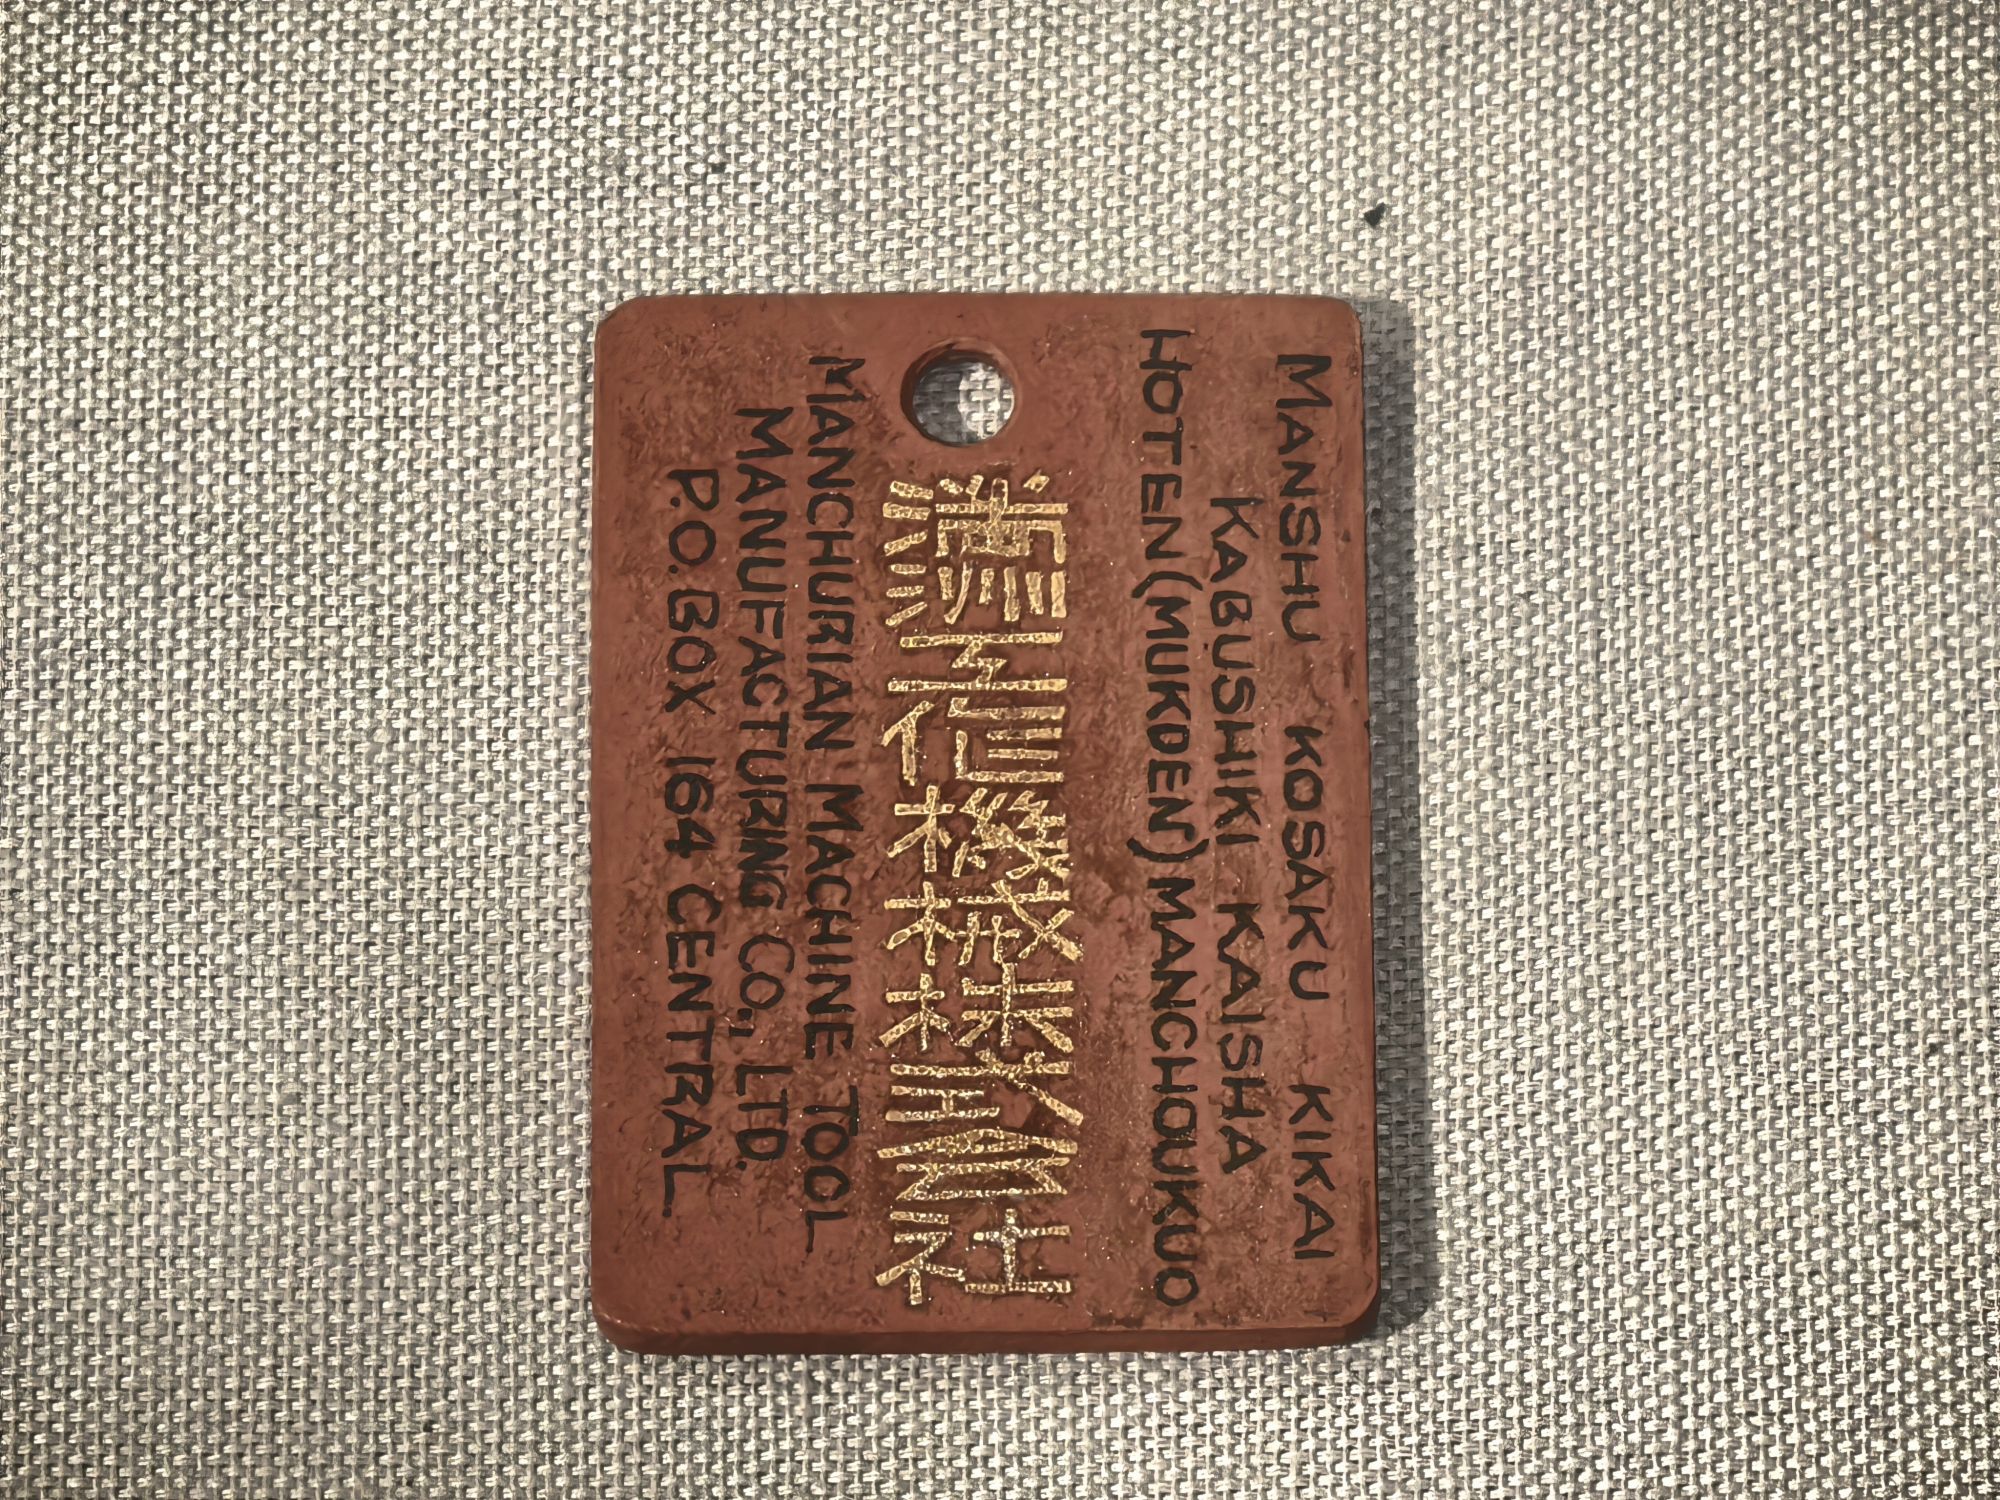 MANSHU KOSAKU KIKAI
KABUSHIKI KAISHA
HOTEN(MUKDEN)MANCHOUKUO
満洲工作機械株式会社
MANCHURIAN MACHINE TOOL
MANUFACTURING CO., LTD.
P.O.BOX 164 CENTRAL.